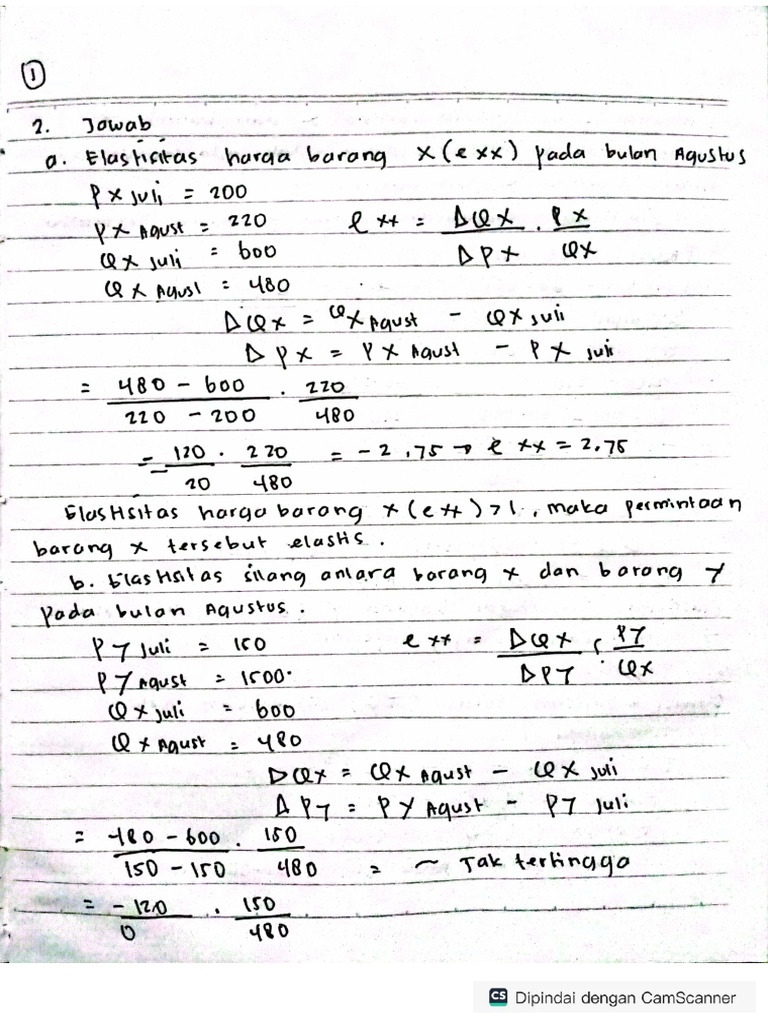 1
2. Jawab
a. Elastisitas harga barang X (e xx) pada bulan Agustus
PX Juli = 200
PX Agust = 220
e xx = ΔQX / ΔPX . PX / QX
QX Juli = 600
QX Agust = 480
ΔQX = QX Agust - QX Juli
ΔPX = PX Agust - PX Juli
= 480 - 600 / 220 - 200 . 220 / 480
= - 120 / 20 . 220 / 480 = -2,75 → e xx = 2,75
Elastisitas harga barang x (exx) >1, maka permintaan
barang x tersebut elastis.
b. Elastisitas silang antara barang x dan barang Y
pada bulan Agustus.
PY Juli = 150
e xx = ΔQX / ΔPY . PY / QX
PY Agust = 1500
QX Juli = 600
QX Agust = 480
ΔQX = QX Agust - QX Juli
ΔPY = PY Agust - PY Juli
= 480 - 600 / 150 - 150 . 150 / 480 = ~ Tak terhingga
= -120 / 0 . 150 / 480
CS Dipindai dengan CamScanner